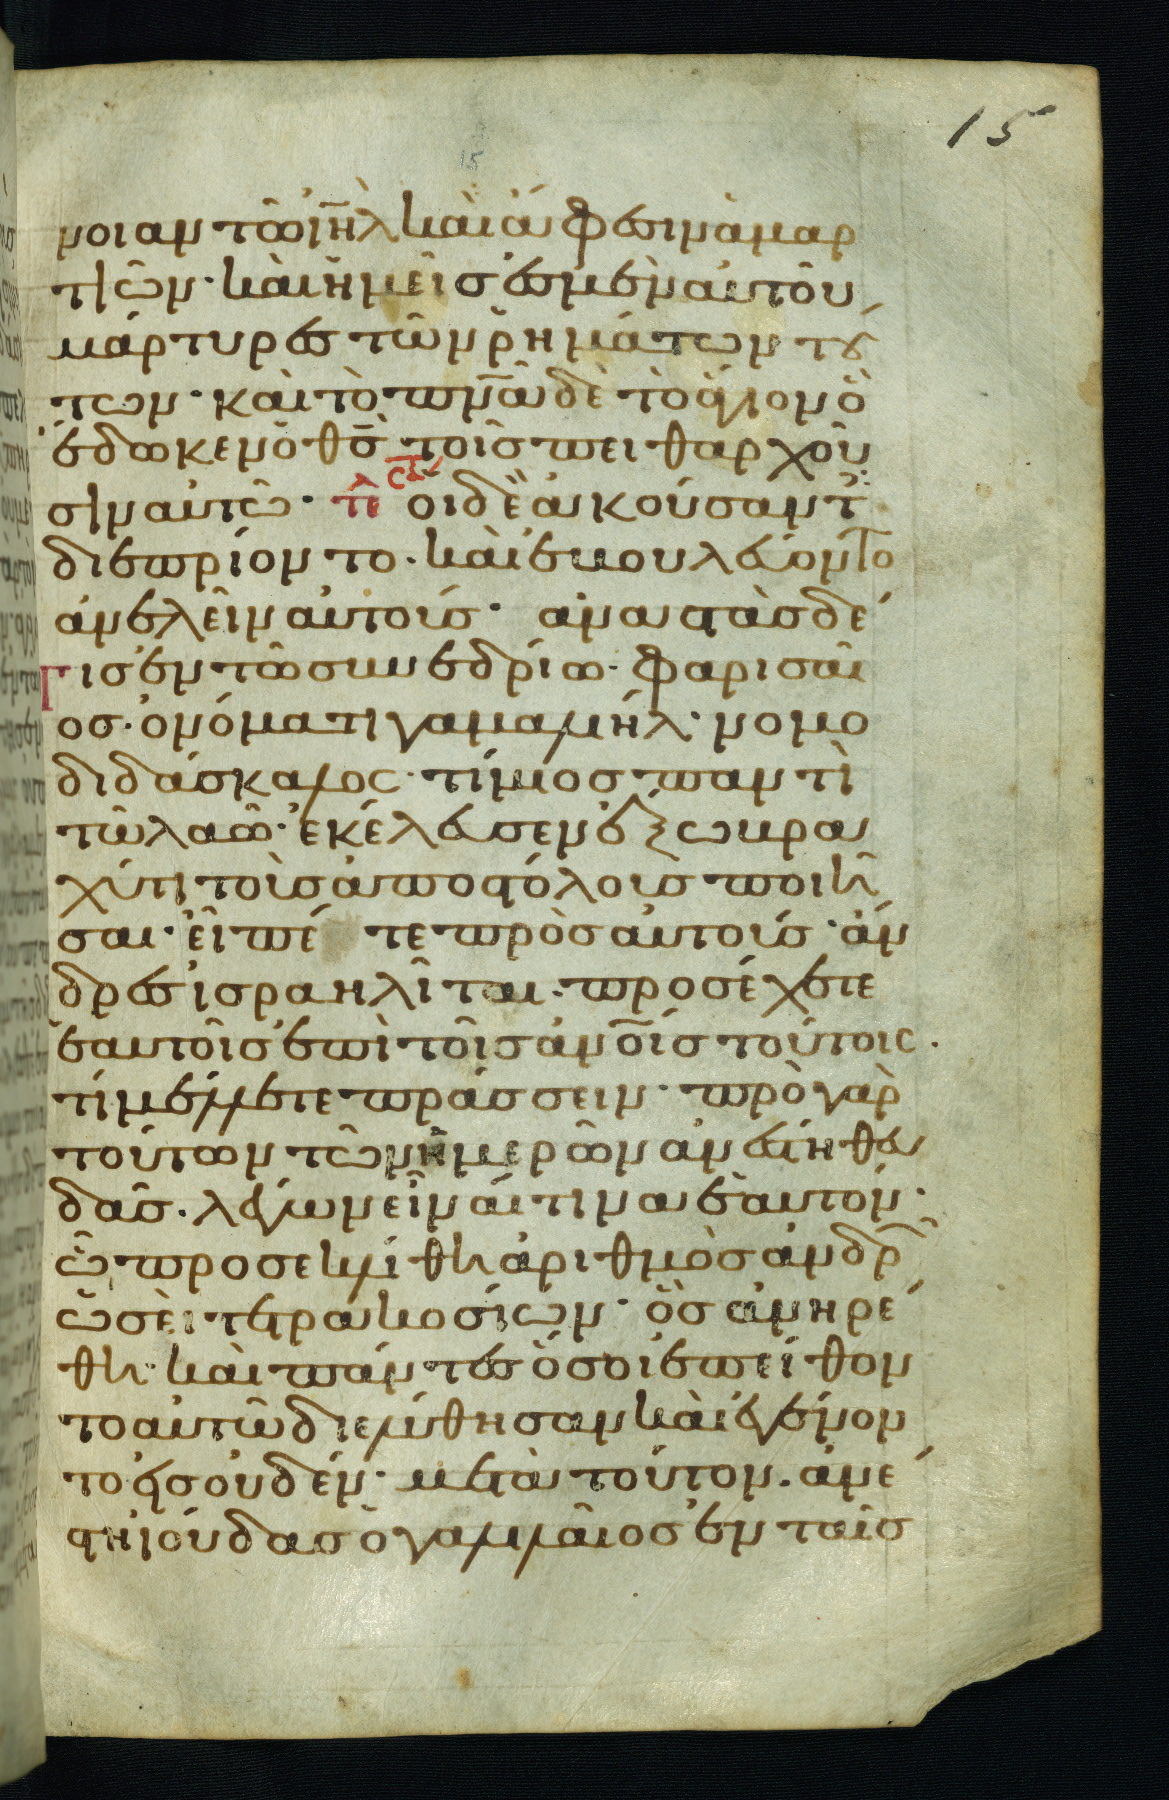 15
15
νοιαν τῶ ιη̅λ καὶ ἄφεσιν ἁμαρ
τιῶν· καὶ ἡμεῖς ἐσμὲν αὐτοῦ
μάρτυρες τῶν ῥημάτων τού
των· καὶ τὸ πν̅α δὲ τὸ ἅγιον ὃ
ἔδωκεν ὁ θ̅ς τοῖς πειθαρχοῦ
σιν αὐτῶ· οἱ δὲ ἀκούσαντ
διεπρίοντο. καὶ ἐβουλεύοντο
ἀνελεῖν αὐτούς· ἀναστὰς δέ
τις ἐν τῶ συνεδρίω· φαρισαῖ
ος· ὀνόματι γαμαλιήλ· νομο
διδάσκαλος· τίμιος παντὶ
τῶ λαῶ· ἐκέλευσεν ἔξω βρα
χύ τι τοὺς ἀποστόλους ποιῆ
σαι· εἶπέ τε πρὸς αὐτούς· ἄν
δρες ἰσραηλῖται. προσέχετε
ἑαυτοῖς ἐπὶ τοῖς ἀν̅οις τούτοις.
τί μέλλετε πράσσειν· πρὸ γὰρ
τούτων τῶν ἡμερῶν ἀνέστη θευ
δᾶς. λέγων εἶναί τινα ἑαυτόν·
ὧ προσεκλίθη ἀριθμὸς ἀνδρ
ὡσεὶ τετρακοσίων· ὃς ἀνηρέ
θη· καὶ πάντες ὅσοι ἐπείθον
το αὐτῶ διελύθησαν καὶ ἐγένον
το εἰς οὐδέν· μετὰ τοῦτον. ἀνέ
στη ἰούδας ὁ γαλιλαῖος ἐν ταῖς